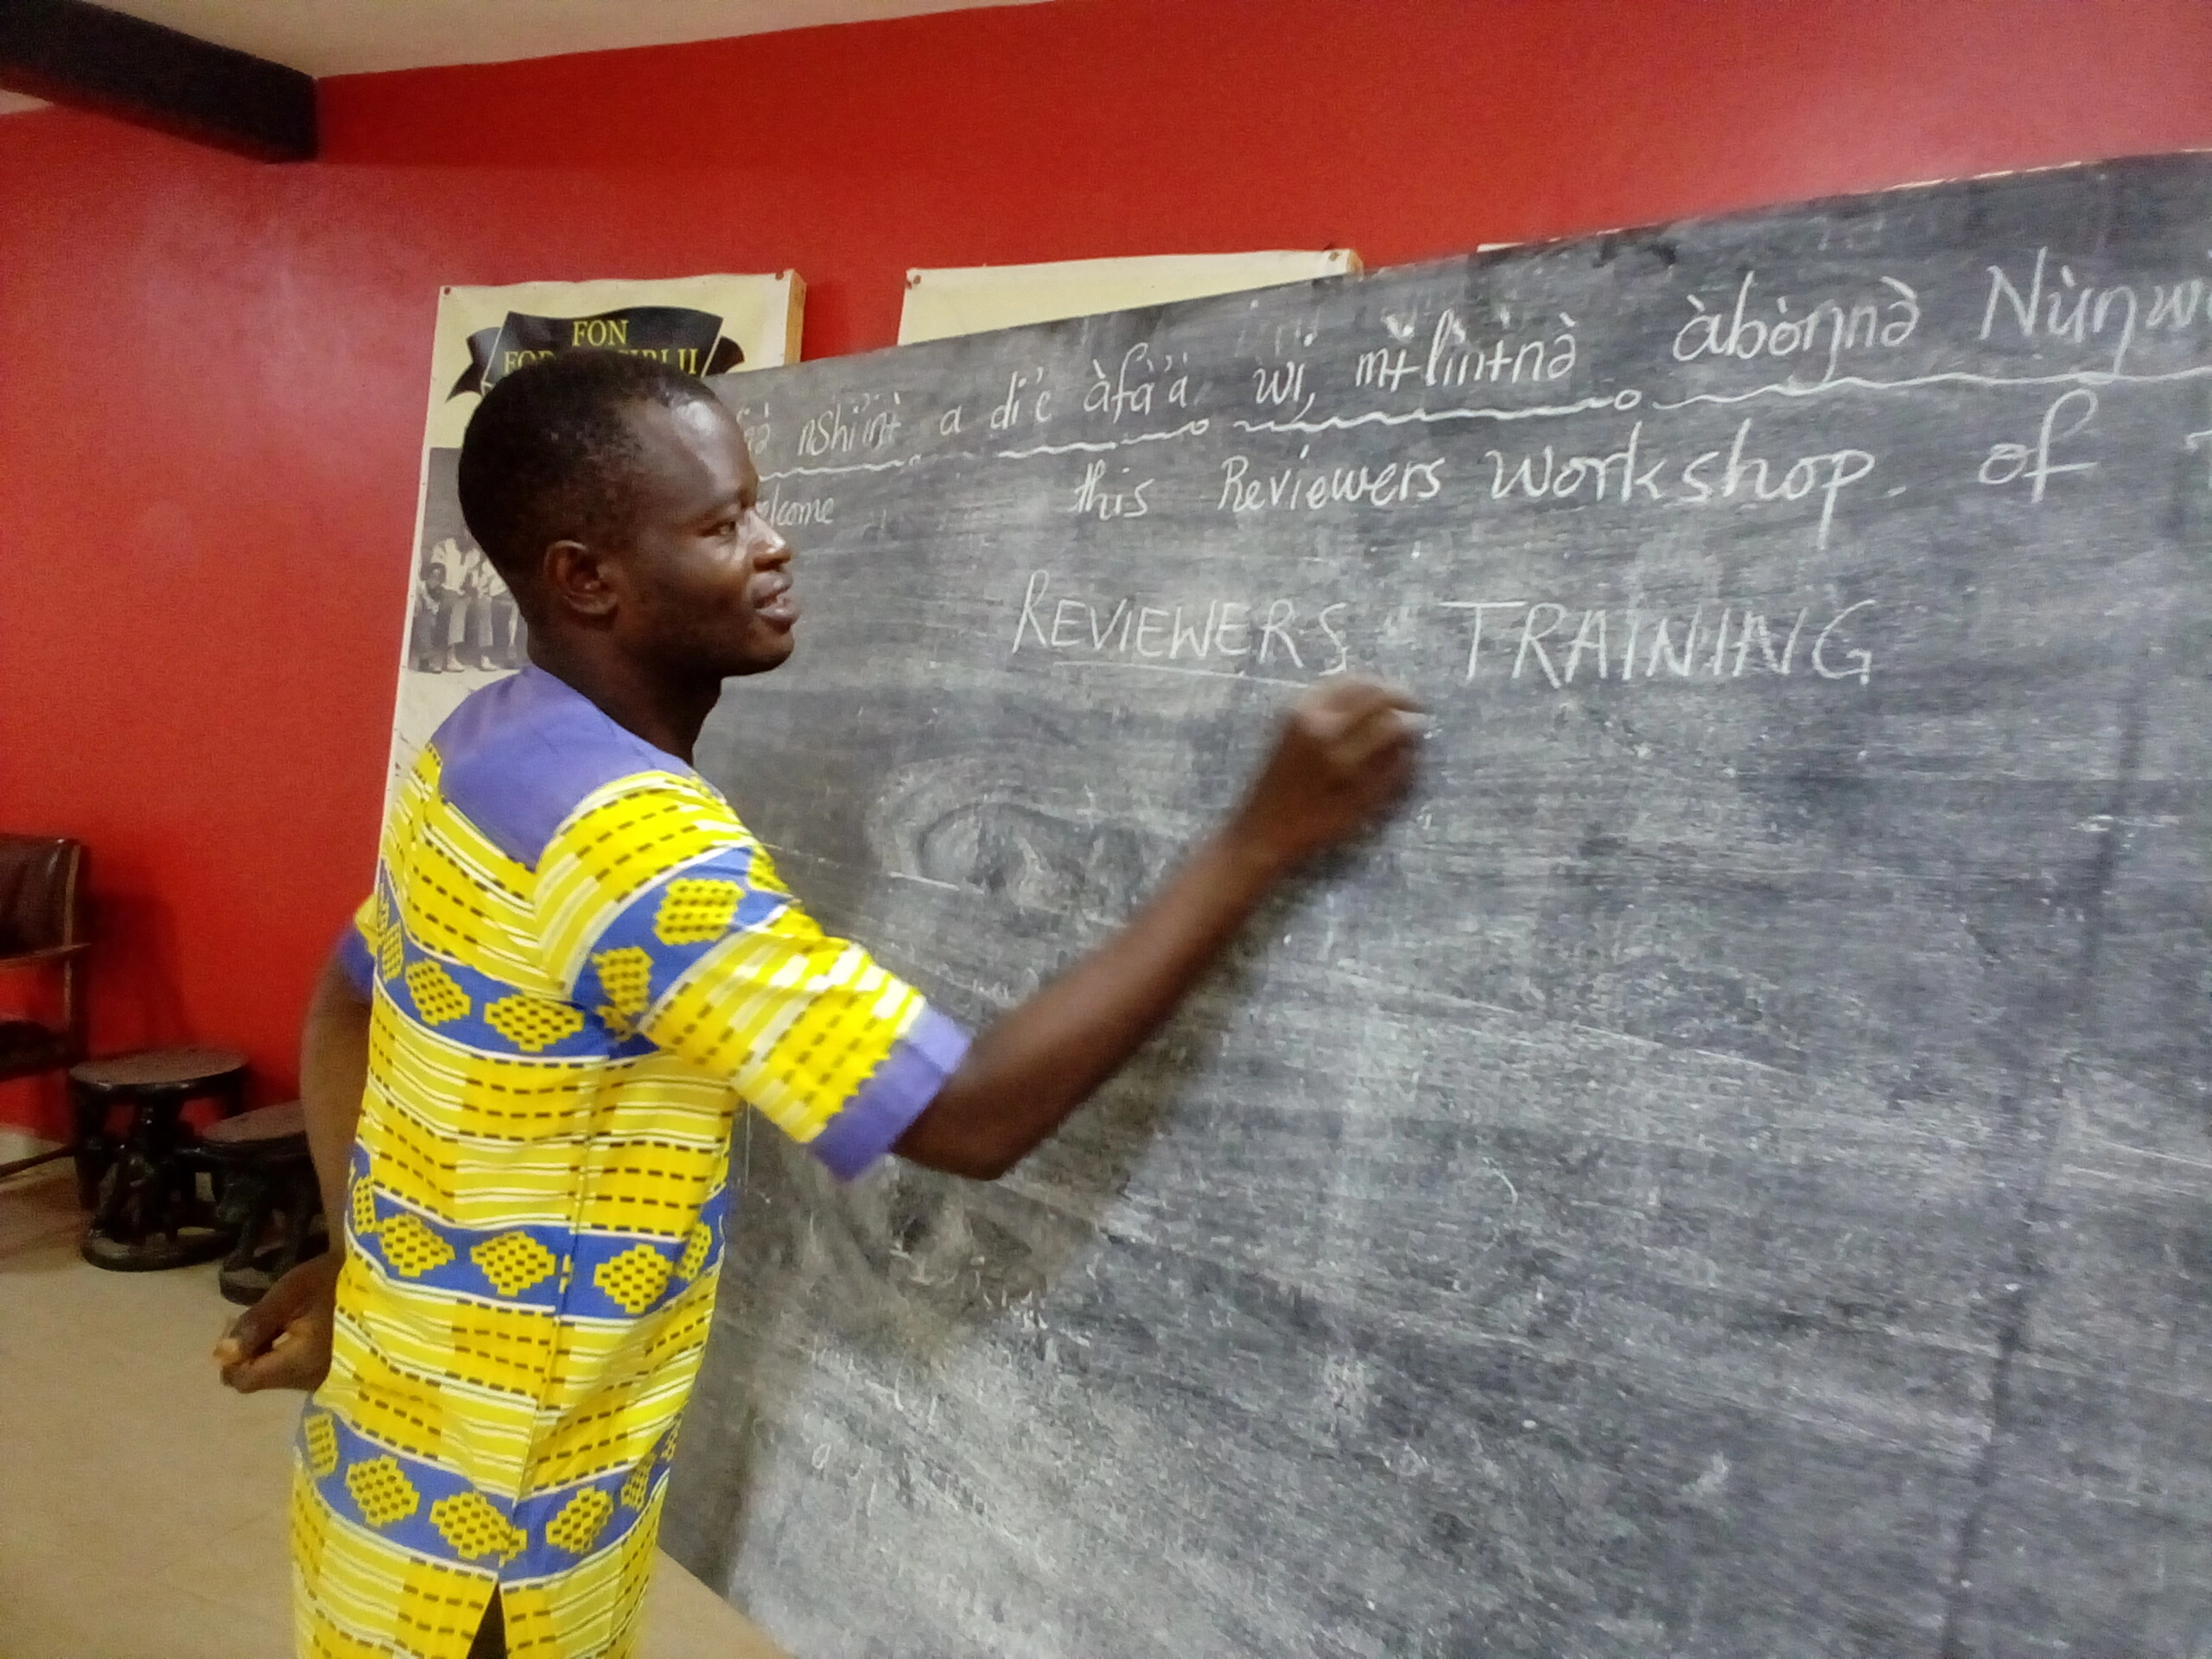 FON
nshi'intɨ̀ a di'e àfà'a wi, mɨ̀lìnɨ̀nə̀ àbòŋnə̀ Nùŋwi
this Reviewers Workshop. of
REVIEWERS' TRAINING